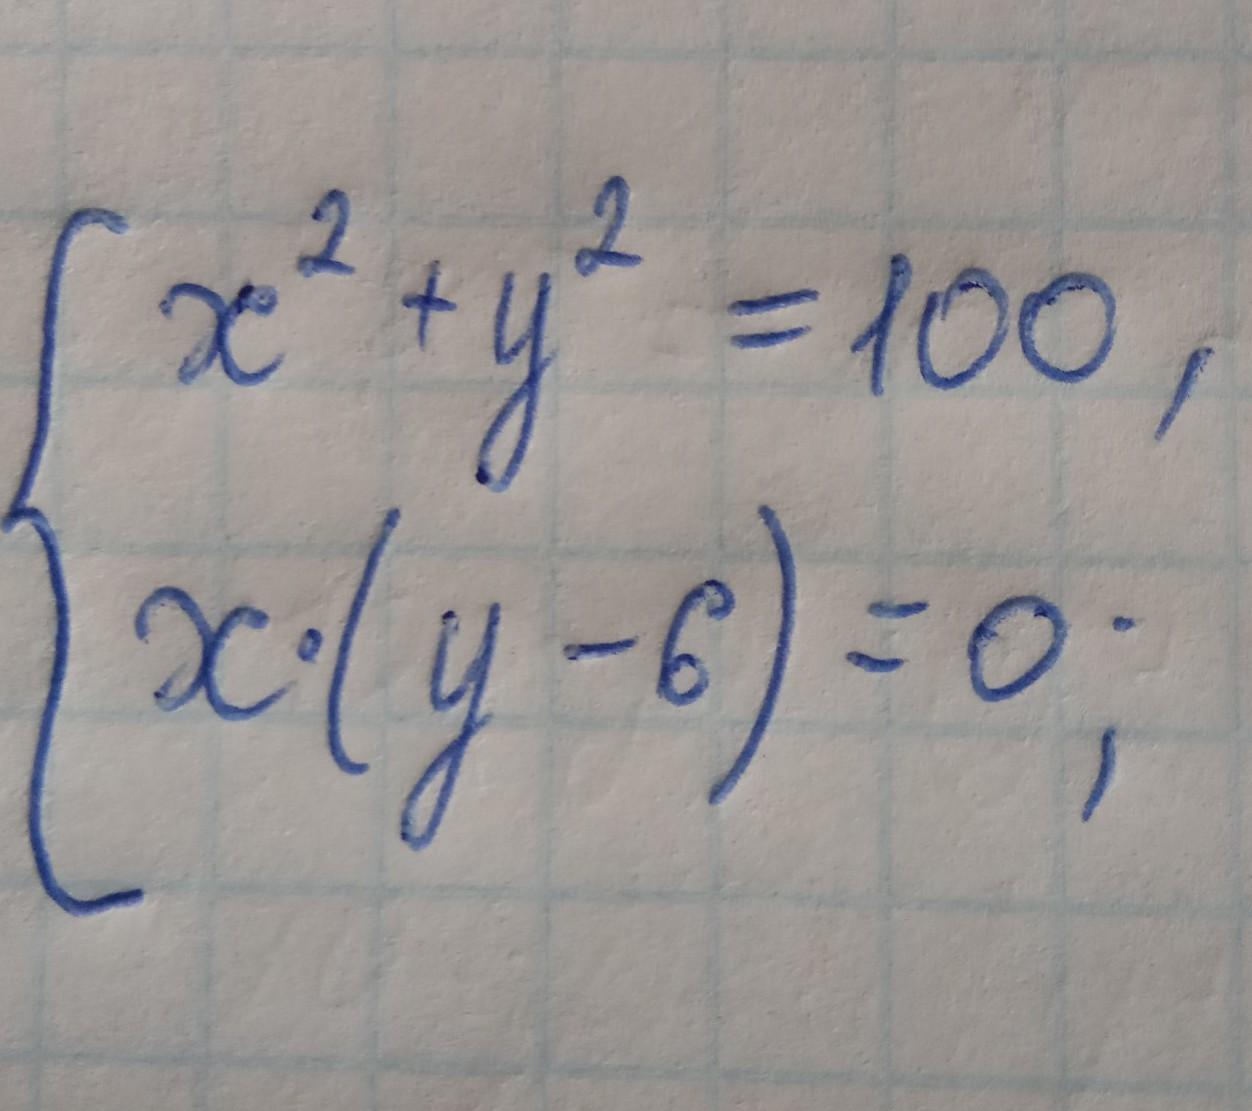 x² + y² = 100,
x·(y - 6) = 0;